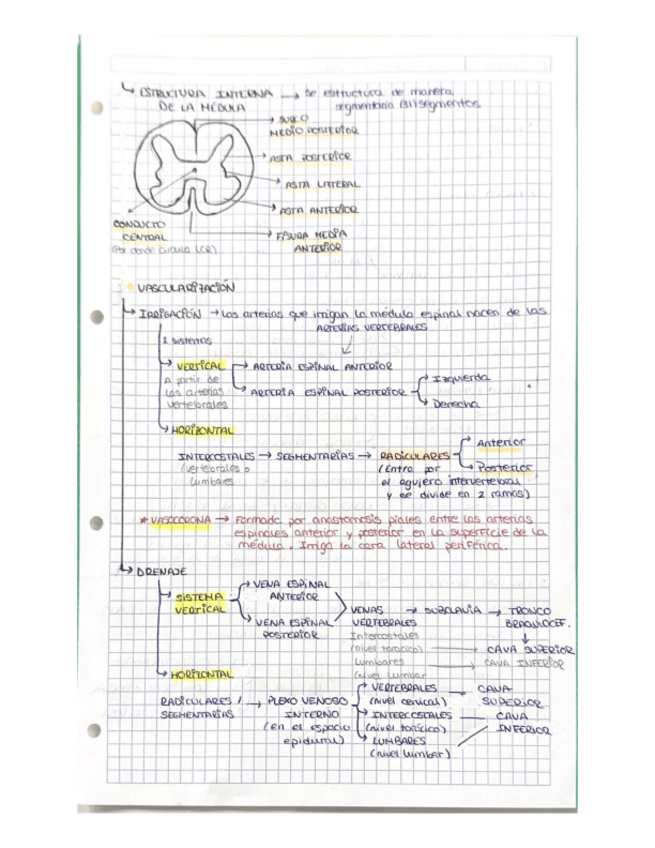 ESTRUCTURA INTERNA → Se estructura de manera
DE LA MÉDULA segmentaria (31) segmentos.
SURCO
MEDIO POSTERIOR
ASTA POSTERIOR
ASTA LATERAL
ASTA ANTERIOR
CONDUCTO
CENTRAL
(Por donde circula LCR)
FISURA MEDIA
ANTERIOR
VASCULARIZACIÓN
IRRIGACIÓN → Las arterias que irrigan la médula espinal nacen de las
ARTERIAS VERTEBRALES
2 sistemas
VERTICAL → ARTERIA ESPINAL ANTERIOR
A partir de
las arterias
vertebrales
→ ARTERIA ESPINAL POSTERIOR
Izquierda
Derecha
HORIZONTAL
INTERCOSTALES → SEGMENTARIAS → RADICULARES
(vertebrales o
lumbares
(Entra por
el agujero intervertebral
y se divide en 2 ramas)
Anterior
Posterior
* VASOCORONA → Formada por anastomosis piales entre las arterias
espinales anterior y posterior en la superficie de la
médula. Irriga la cara lateral periférica.
DRENAJE
SISTEMA
VERTICAL
VENA ESPINAL
ANTERIOR
VENA ESPINAL
POSTERIOR
VENAS → SUBCLAVIA → TRONCO
VERTEBRALES BRAQUIOCEF.
Intercostales
(nivel torácico) → CAVA SUPERIOR
Lumbares → CAVA INFERIOR
(nivel lumbar
HORIZONTAL
RADICULARES /
SEGMENTARIAS
→ PLEXO VENOSO
INTERNO
(En el espacio
epidural)
VERTEBRALES → CAVA
(nivel cervical) SUPERIOR
INTERCOSTALES — CAVA
(nivel torácico) INFERIOR
LUMBARES
(nivel lumbar)